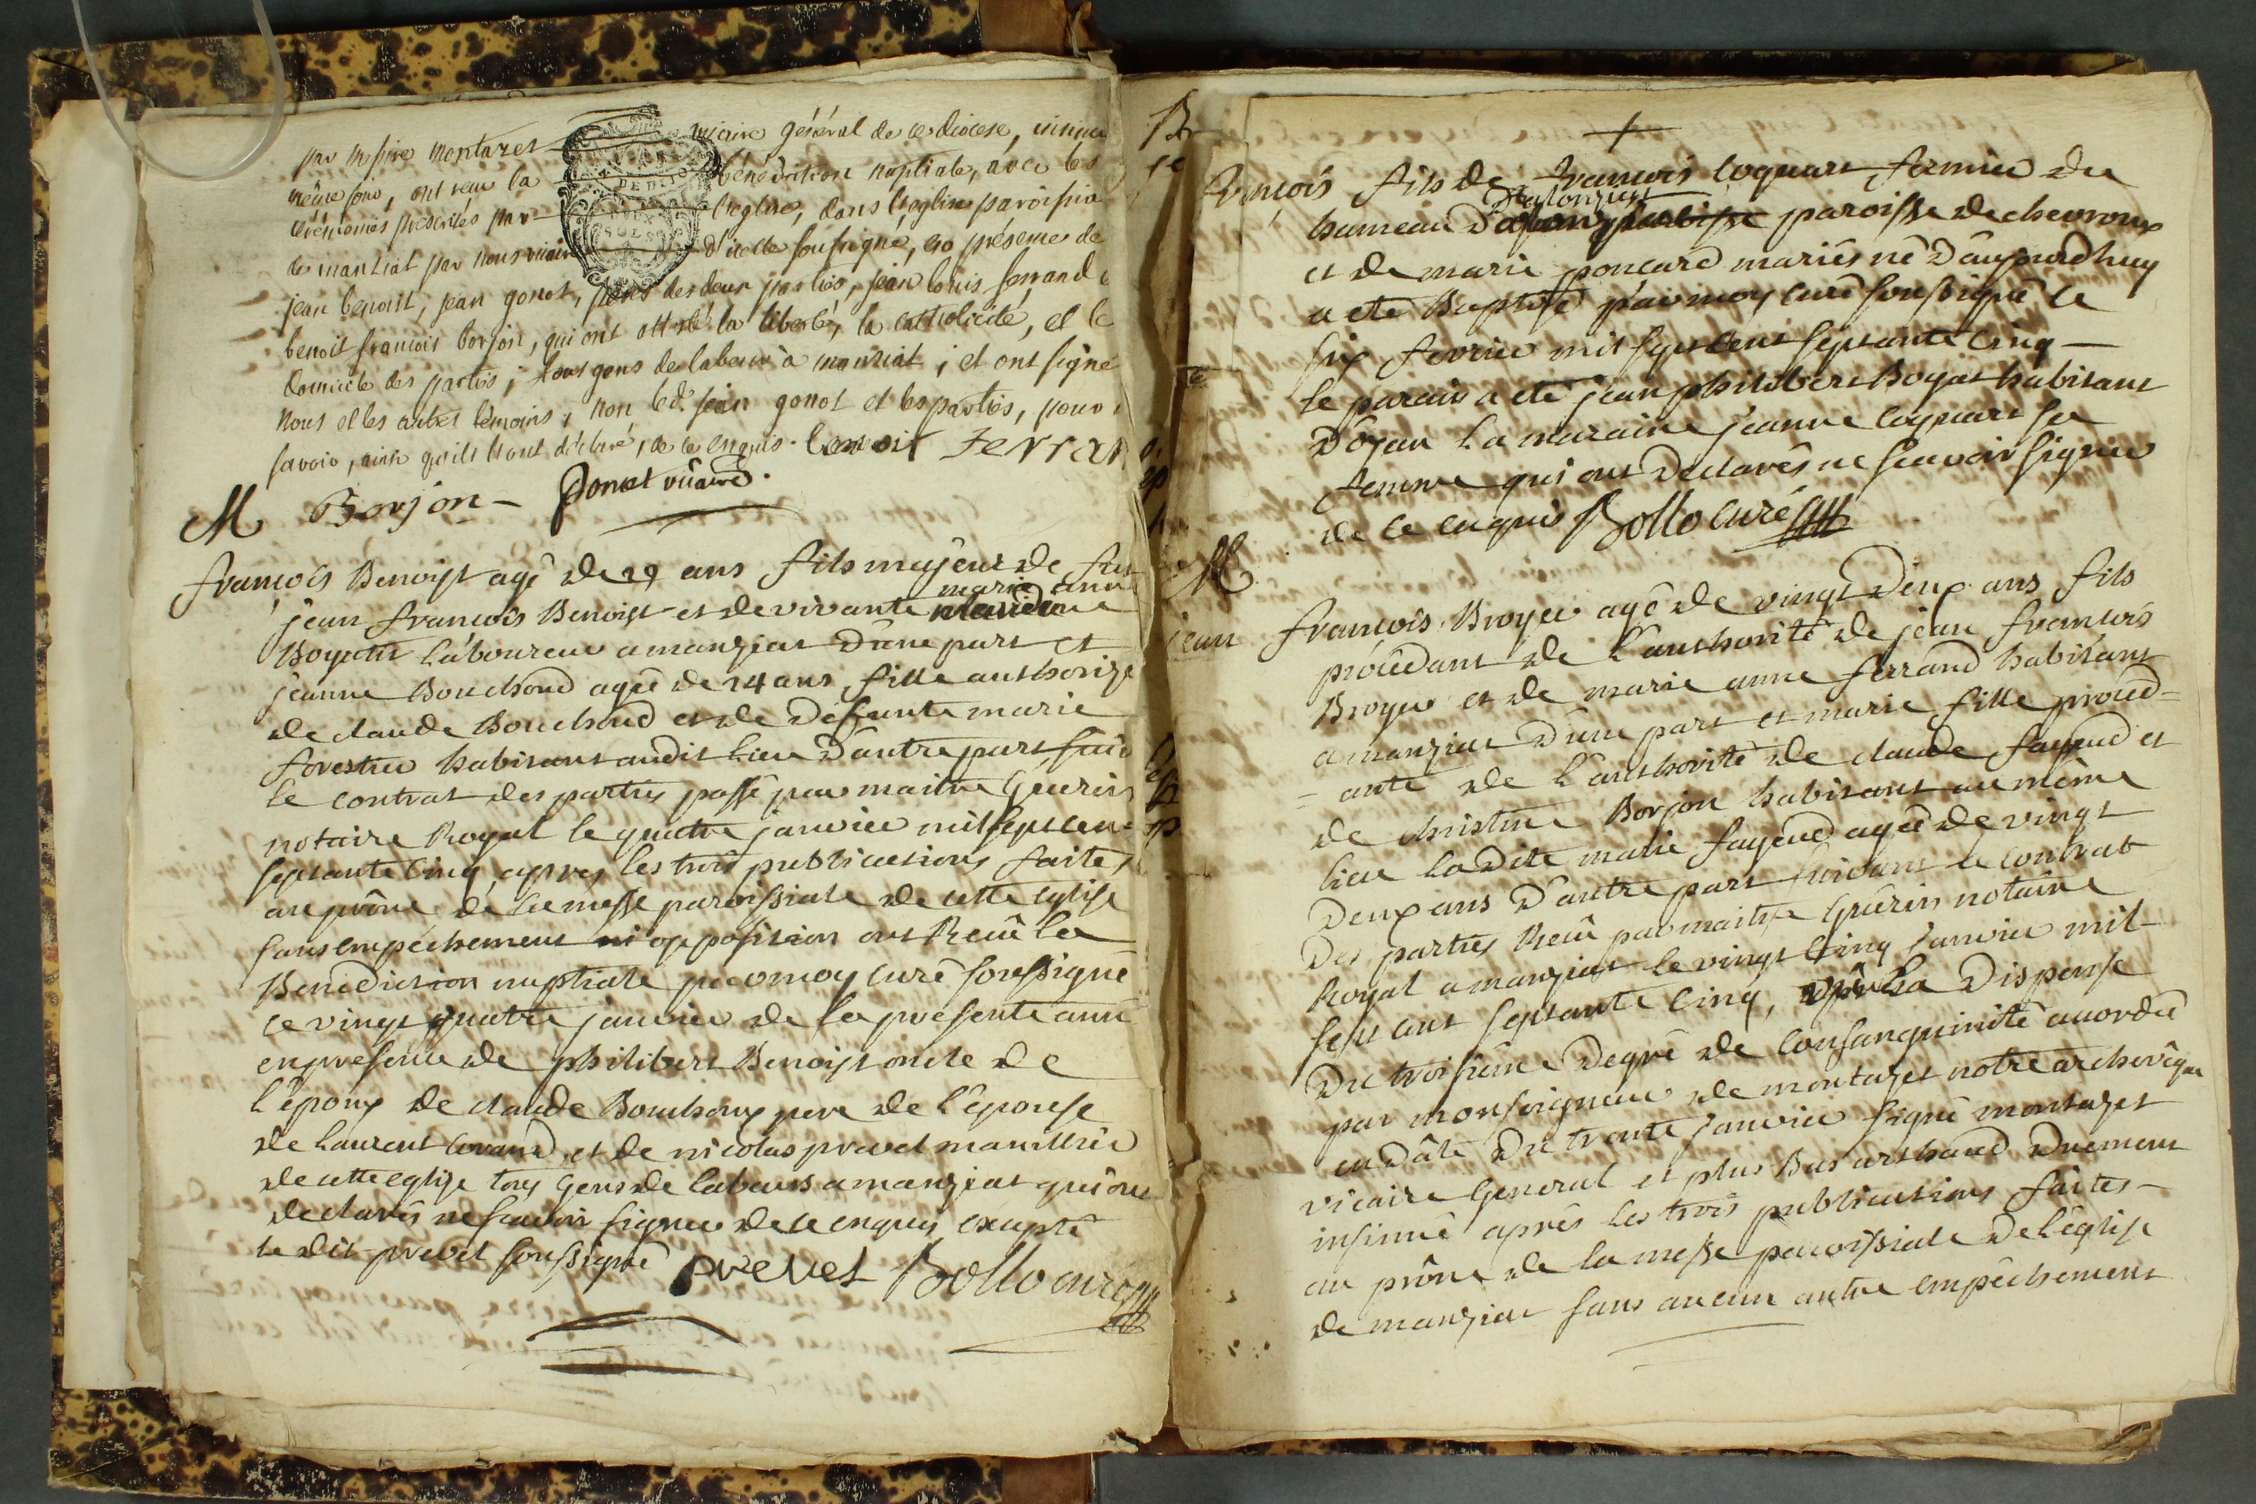 par messire montazet vicaire général de ce diocese, insinué
même jour, ont reçu la bénédiction nuptiale, avec les
cérémonies prescrites par l'eglise, dans l'eglise paroissia
de manziat par nous vicaire d'icelle soussigné, en présence de
jean benoit, jean gonot, peres des deux parties, jean louis ferrand
benoit francois borjon, qui ont attesté la liberté, la catholicité, et le
domicile des parties; tous gens de labeur à manziat; et ont signé
nous et les autres témoins, non led. jean gonot et les parties, pour
savoir, ainsi qu'ils l'ont déclaré, de ce enquis. benoit ferran
Borjon - Donat vicaire.
M
françois Benoist agé de 29 ans fils majeur de feu
marie anne
jean francois Benoist et de vivante
Boyat laboureur a manziat d'une part et
jeanne Bouchoud agée de 24 ans fille authorizé
de claude Bouchoud et de deffunte marie
forestier habitans audit lieu d'autre part suiv
le contrat des parties passé par maitre Guerin
notaire Royal le quatre janvier mil sept cen=
septante cinq, apres les trois publications faites
au prône de la messe paroissiale de cette eglise
sans empéchement ni opposition ont Receû la
Benediction nuptiale par moy curé soussigné
ce vingt quatre janvier de la presente anné
en presence de philibert Benoist oncle de
l'époux de claude Bouchoux pere de l'épouse
de laurent et de nicolas prevet manillier
de cette eglise tous gens de labeurs a manziat qui ont
declarés ne scavoir signer de ce enquis excepté
le dit prevet soussigné prevet Bollo curé
+
françois fils de francois Coquart fermier du
hameau paroisse de chevroux
et de marie poncard mariés né d'aujourd'huy
a eté Baptisé par moy curé soussigné le
six fevrier mil sept cent septante cinq -
le parain a eté jean philibert Boyat habitant
d'ozan la maraine jeanne coquart sa
femme qui ont declarés ne scavoir signer
de ce enquis Bollo curé
M
jean françois Broyer agé de vingt deux ans fils
procédant de l'authorité de jean francois
Broyer et de marie anne ferrand habitans
a manziat d'une part et marie fille procéd=
=ante de l'authorité de claude fayend et
de christine Borjon habitans au même
lieu ladite marie fayend agée de vingt
deux ans d'autre part suivant le contrat
des parties Receû par maitre Guérin notaire
Royal a manziat le vingt cinq janvier mil
sept cent septante cinq, la dispense
du troisiême degré de consanguinité accordée
par monseigneur de montazet notre archevêque
en dâte du trente janvier signé montazet
vicaire general et plus bas arthaud duement
insinué aprés les trois publications faites
au prône de la messe paroissiale de l'église
de manziat sans aucun autre empêchement